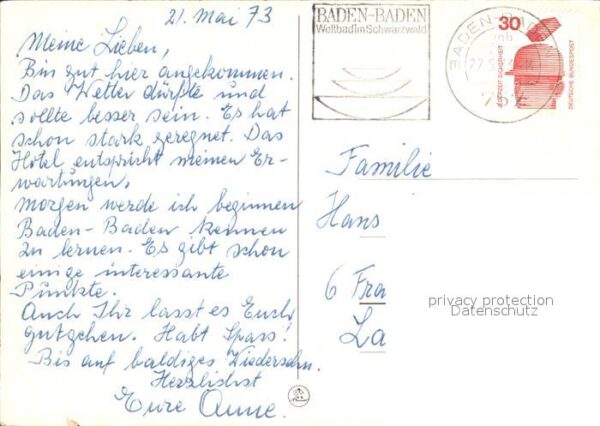 21. Mai 73
Meine Lieben,
Bin gut hier angekommen.
Das Wetter dürfte und
sollte besser sein. Es hat
schon stark geregnet. Das
Hotel entspricht meinen Er-
wartungen.
Morgen werde ich beginnen
Baden-Baden kennen
zu lernen. Es gibt schon
einige interessante
Punkte.
Auch Ihr lasst es Euch
gutgehen. Habt Spass!
Bis auf baldiges Wiedersehn.
Herzlichst
Eure Anne.
BADEN-BADEN
Weltbad im Schwarzwald
BADEN-BADEN
757
30
JEDERZEIT SICHERHEIT
DEUTSCHE BUNDESPOST
Familie
Hans
6 Fra
La
privacy protection
Datenschutz